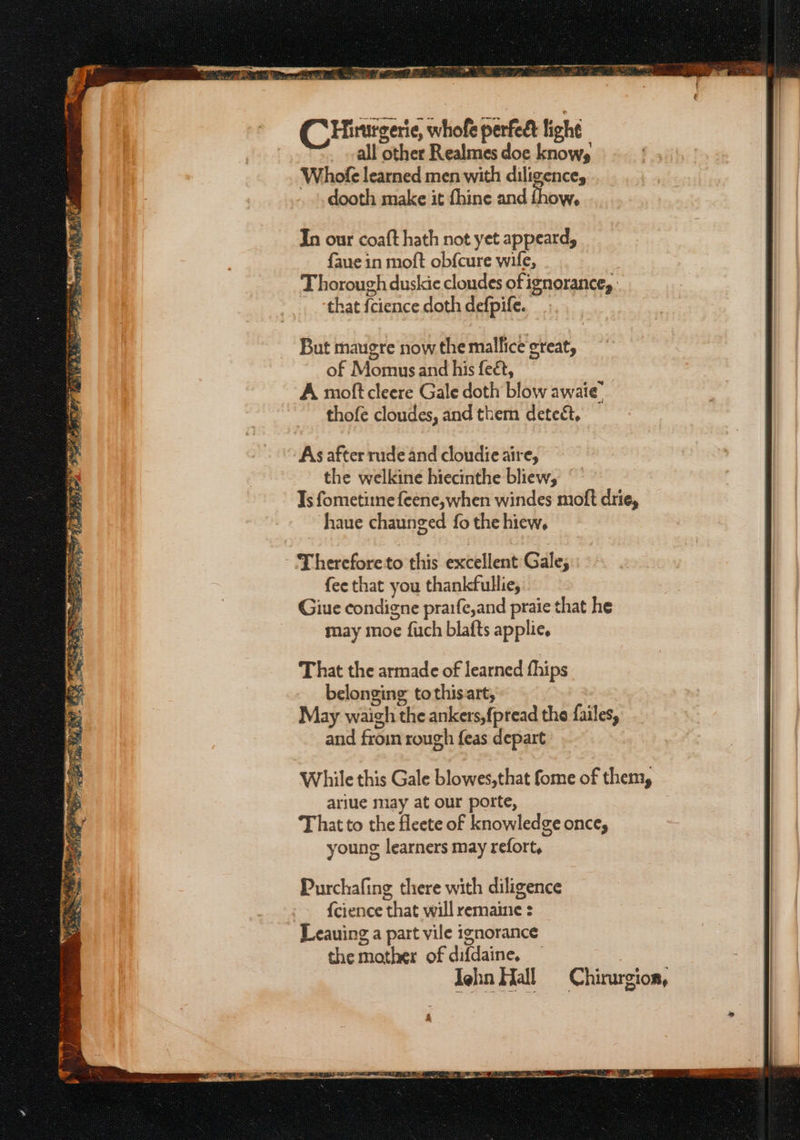 CHirurgerie, whoſe perfect light
all other Realmes doe know,
Whoſe learned men with diligence,
dooth make it ſhine and ſhow.
In our coaſt hath not yet appeard,
ſaue in moſt obſcure wiſe,
Thorough duskie cloudes of ignorance,
that ſcience doth deſpiſe.
But maugre now the mallice great,
of Momus and his ſect,
A moſt cleere Gale doth blow awaie
thoſe cloudes, and them detect.
As after rude and cloudie aire,
the welkine hiecinthe bliew,
Is ſometime ſeene, when windes moſt drie,
haue chaunged ſo the hiew.
Therefore to this excellent Gale,
ſee that you thankfullie,
Giue condigne praiſe, and praie that he
may moe ſuch blaſts applie.
That the armade of learned ſhips
belonging to this art,
May waigh the ankers, ſpread the ſailes,
and from rough ſeas depart
While this Gale blowes, that ſome of them,
ariue may at our porte,
That to the fleete of knowledge once,
young learners may reſort.
Purchaſing there with diligence
ſcience that will remaine :
Leauing a part vile ignorance
the mother of diſdaine.
Iohn Hall Chirurgion,